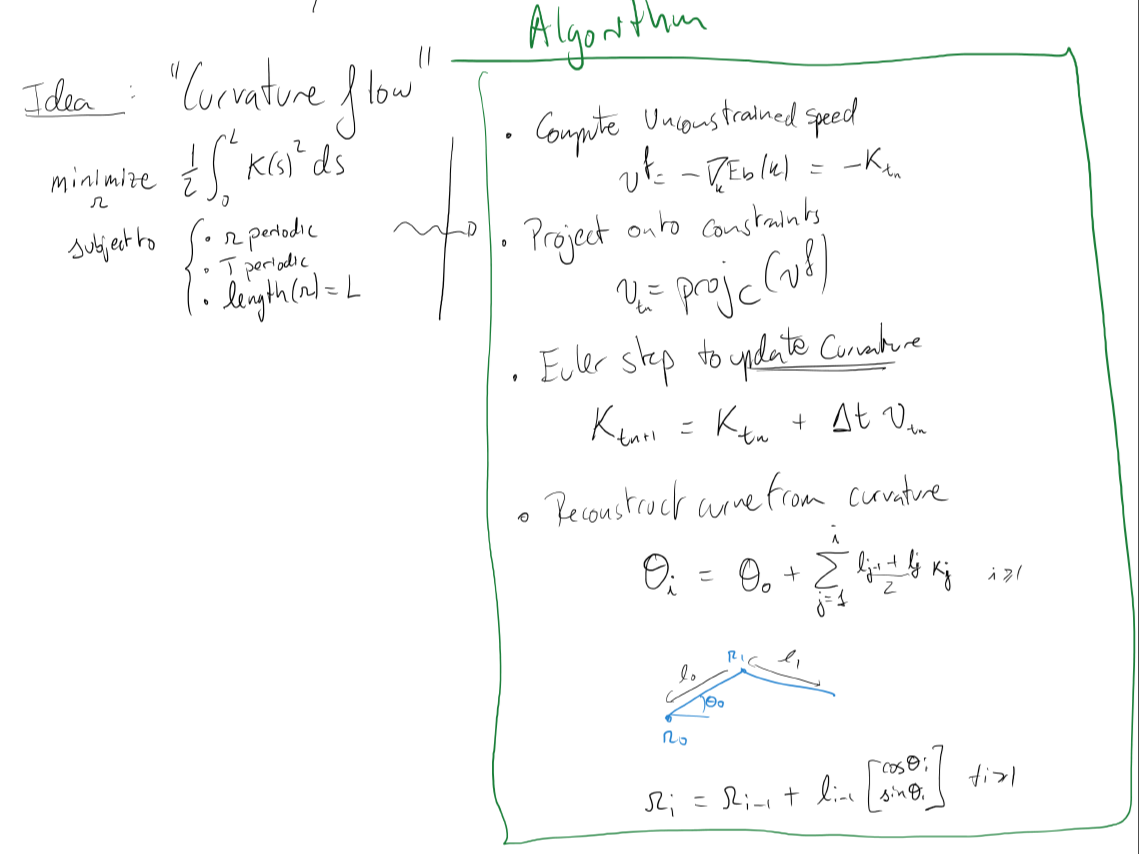 Idea : "Curvature flow"
minimize 1/2 ∫₀ᴸ K(s)² ds
r
subject to { • r periodic
• T periodic
• length(r) = L
Algorithm
• Compute Unconstrained speed
v^f = - ∇_κ E_b(κ) = - K_{t_n}
• Project onto constraints
v_{t_n} = proj_C (v^f)
• Euler step to update Curvature
K_{t_{n+1}} = K_{t_n} + Δt v_{t_n}
• Reconstruct curve from curvature
θ_i = θ_0 + Σ_{j=1}^{i} (l_{j-1} + l_j)/2 K_j i ≥ 1
r_1 l_1
l_0
θ_0
r_0
r_i = r_{i-1} + l_{i-1} [cos θ_i
sin θ_i] ∀i ≥ 1